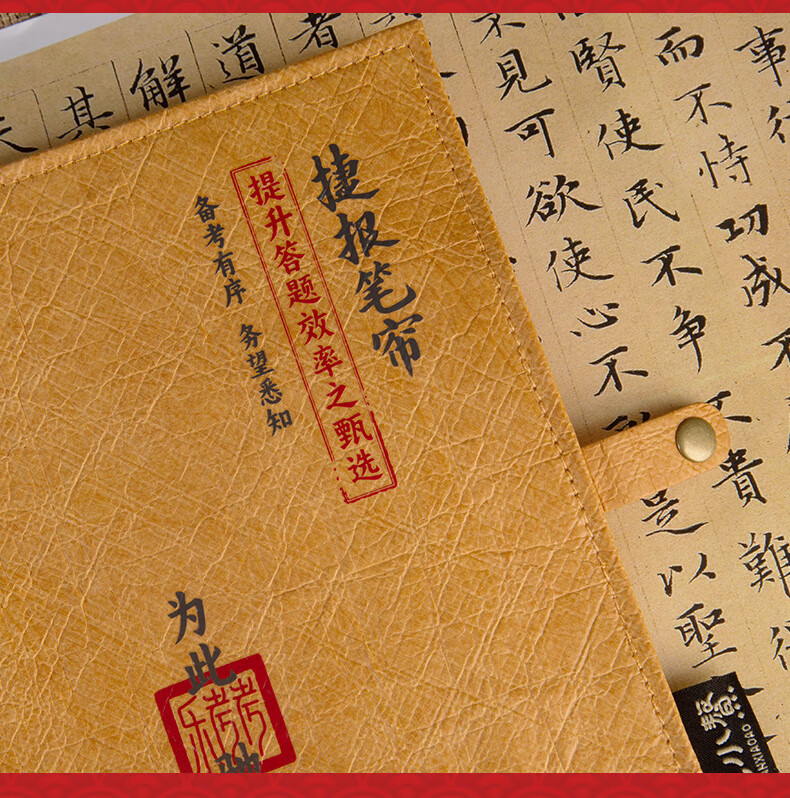 事
而不恃功成不
賢使民不争不貴難
不見可欲使心不
是以聖
者
道
解
其
捷报笔帘
提升答题效率之甄选
备考有序 务望悉知
为此